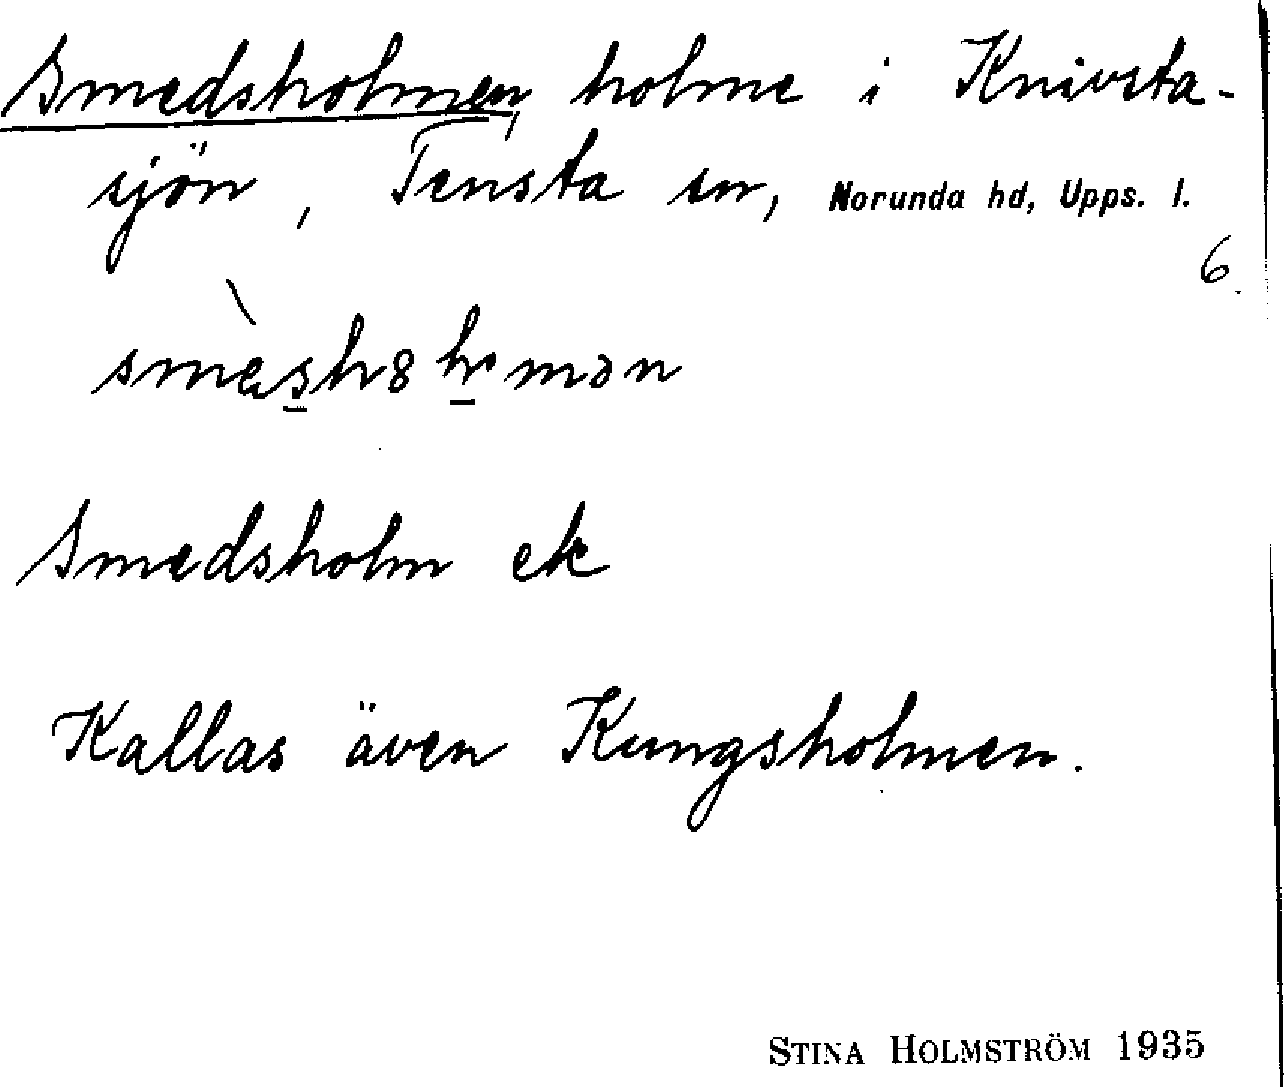 Smedsholmen, holme i Knivsta-
sjön, Tensta sn, Norunda hd, Upps. l.
6.
Smedsholm ek
Kallas även Kungsholmen.
STINA HOLMSTRÖM 1935